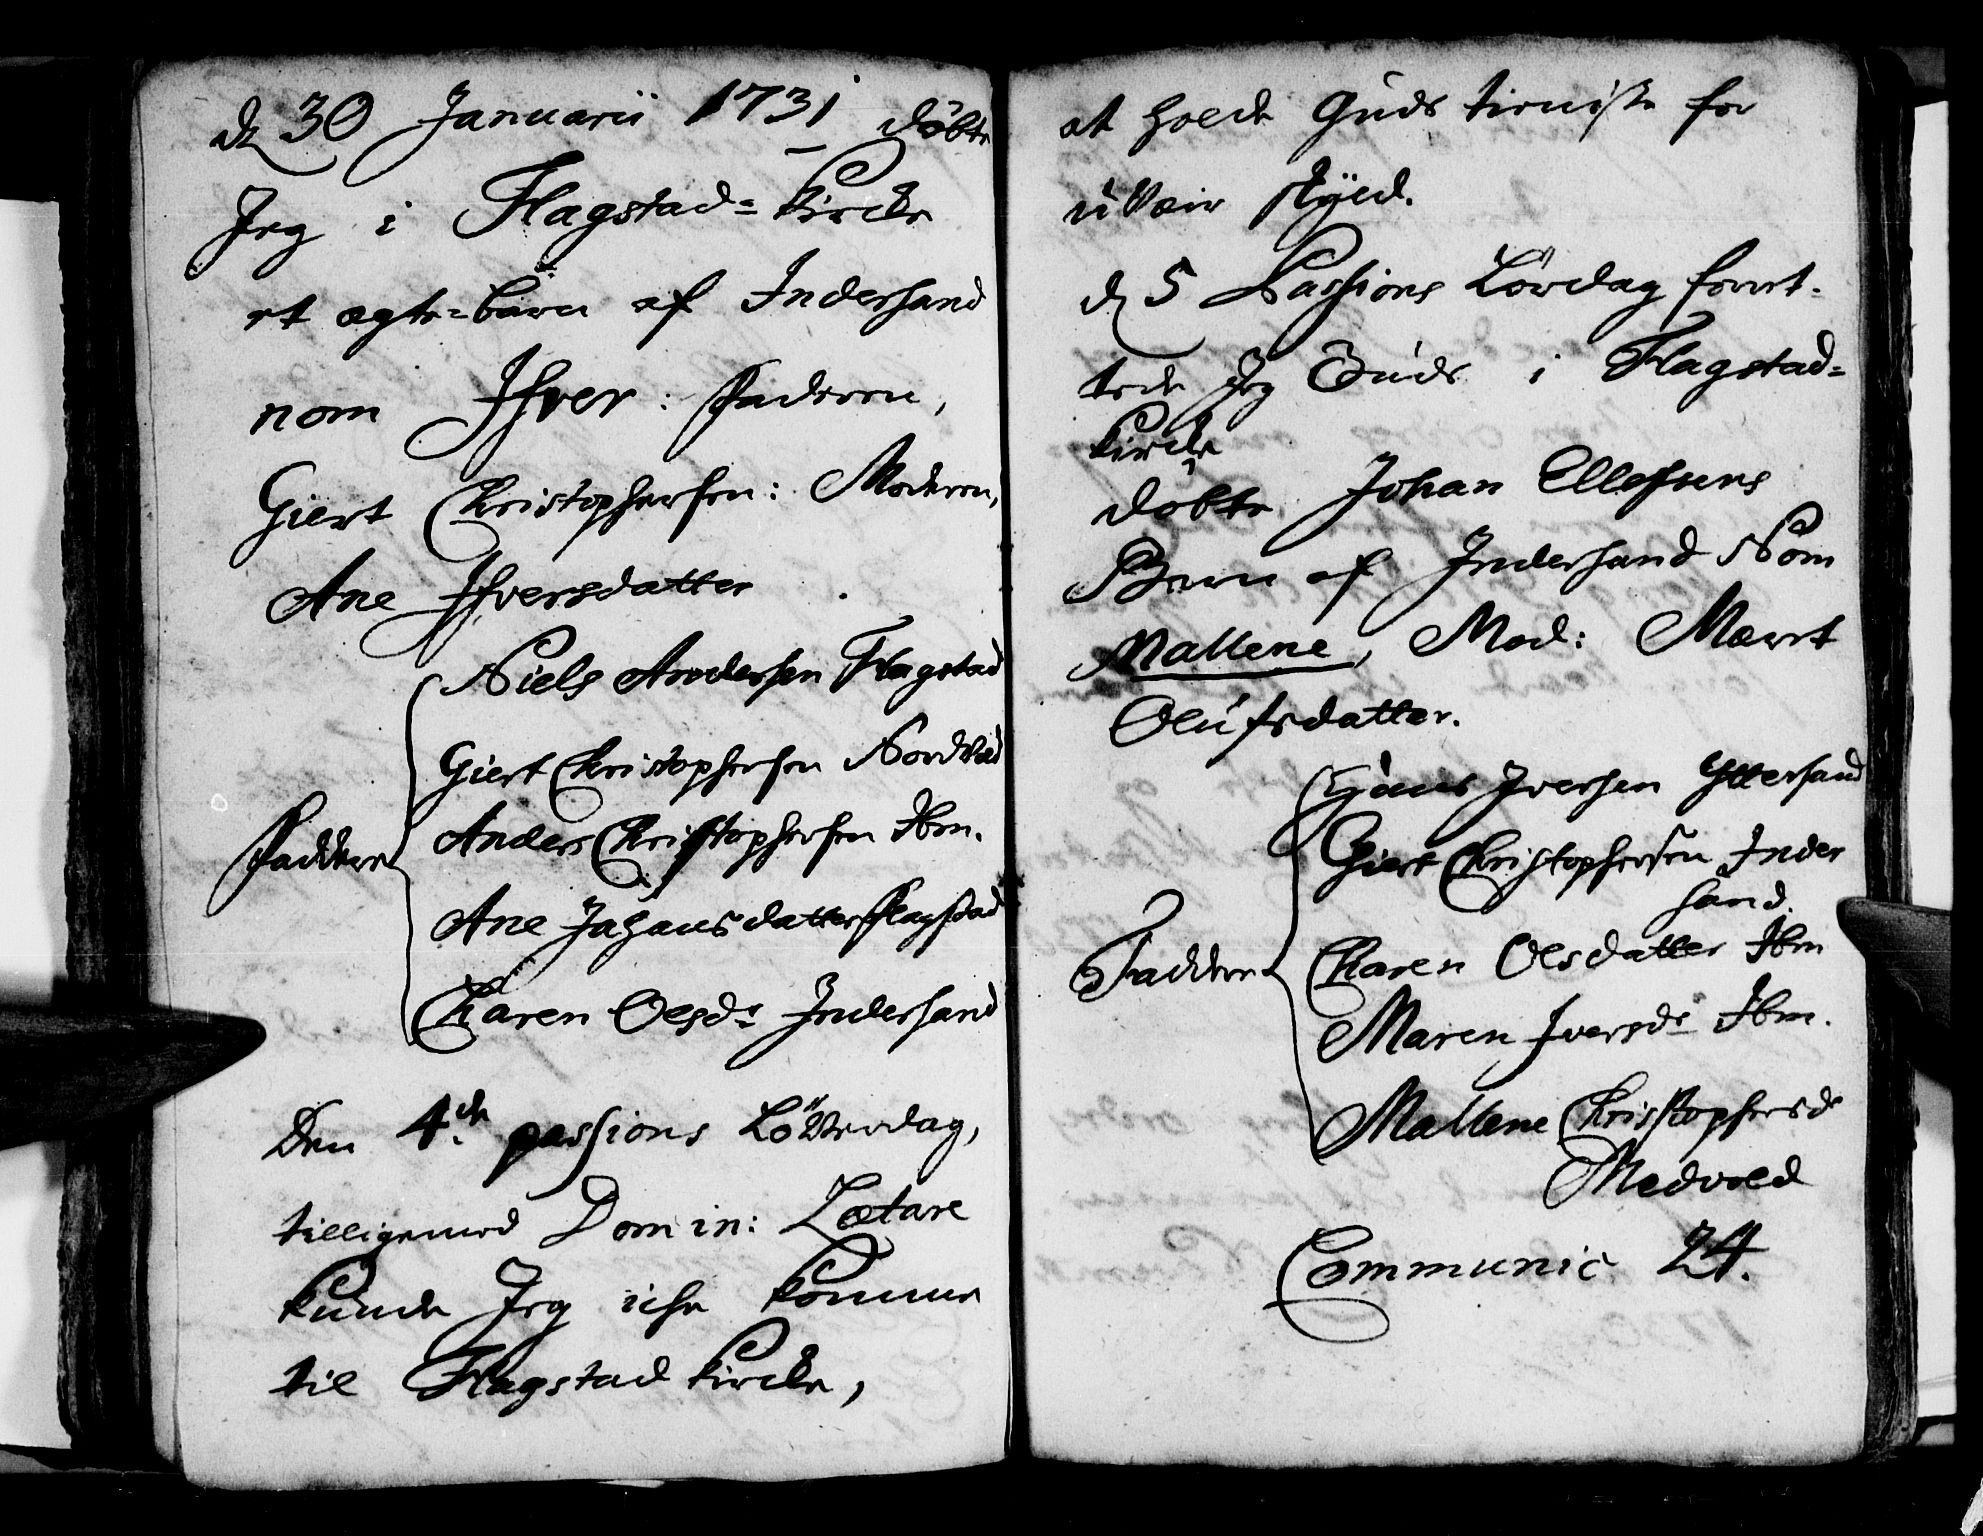 d 30 Januarii 1731 döbte
Jeg i Flagstad= Kircke
et ægte=barn af Indersand
nom Ifver: Faderen,
Giert Christophersen: Moderen,
Ane Ifversdatter
Niels Andersen Flagstad
Giert Christophersen Nordvæd
Anders Christophersen Ibm.
Faddere
Ane Johansdatter Flagstad
Karen Olsdr Indersand
Den 4de passions Löverdag,
tilligemed Domin: Lætare
kunde Jeg icke komme
til Flagstad kircke,
at holde Guds tieniste for
uvær skyld.
d 5 Passions Lördag forret-
tede Jeg Guds i Flagstad=
kircke
döbte Johan Ellefsens
Barn af Indersand Nom
Mallene, Mod: Mærrt
Olufsdatter.
Hans Iversen Yttersand
Giert Christophersen Inder
sand.
Faddere
Karen Olsdatter Ibm
Maren Iversdr Ibm.
Mallene Christophersdr
Medvold
Communic 24.